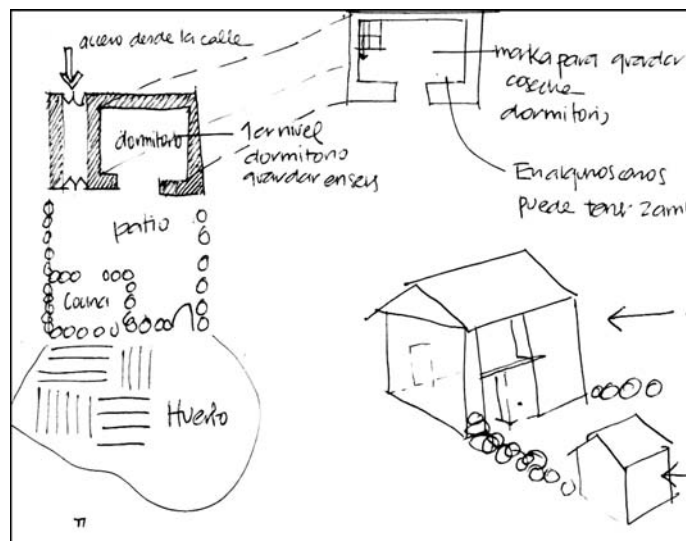 acceso desde la calle
dormitorio
1er nivel
dormitorio
guardar enseres
marka para guardar
cosecha
dormitorio
En algunos casos
puede tener 2 am
patio
Cocina
Huerto